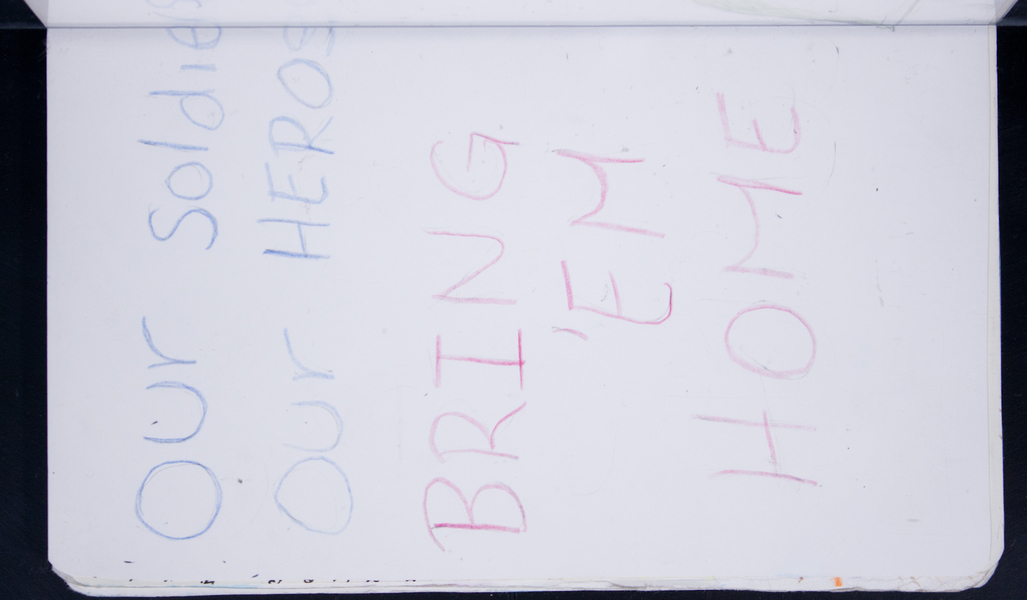 OUR Soldie
OUR HEROS
BRING
'EM
HOME